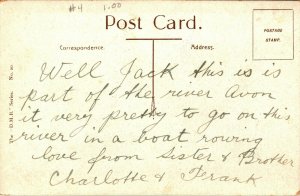 #4 1.00
Post Card.
Correspondence.
Address.
POSTAGE
STAMP.
The D.M.R. Series. No. 20
Well Jack this is is
part of the river Avon
it very pretty to go on this
river in a boat rowing
love from Sister & Brother
Charlotte & Frank